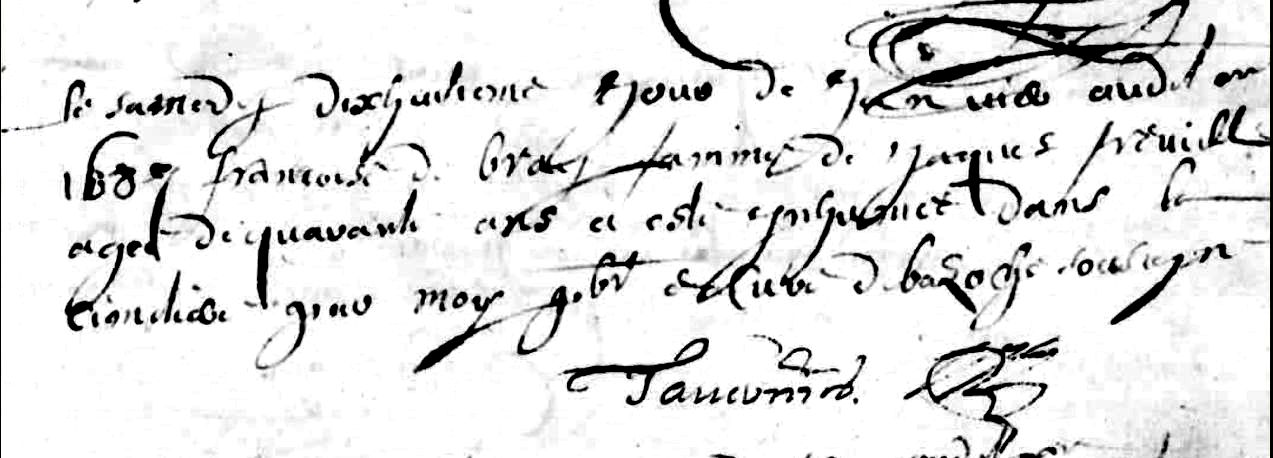 le samedy dixhuitieme jour de Janvier audit an
168 francoise de bray famme de Jaques freuille
agee de quarante ans a esté enhumee dans le
cimetiere par moy pbr et curé de bazoche soussigne
Tavernier